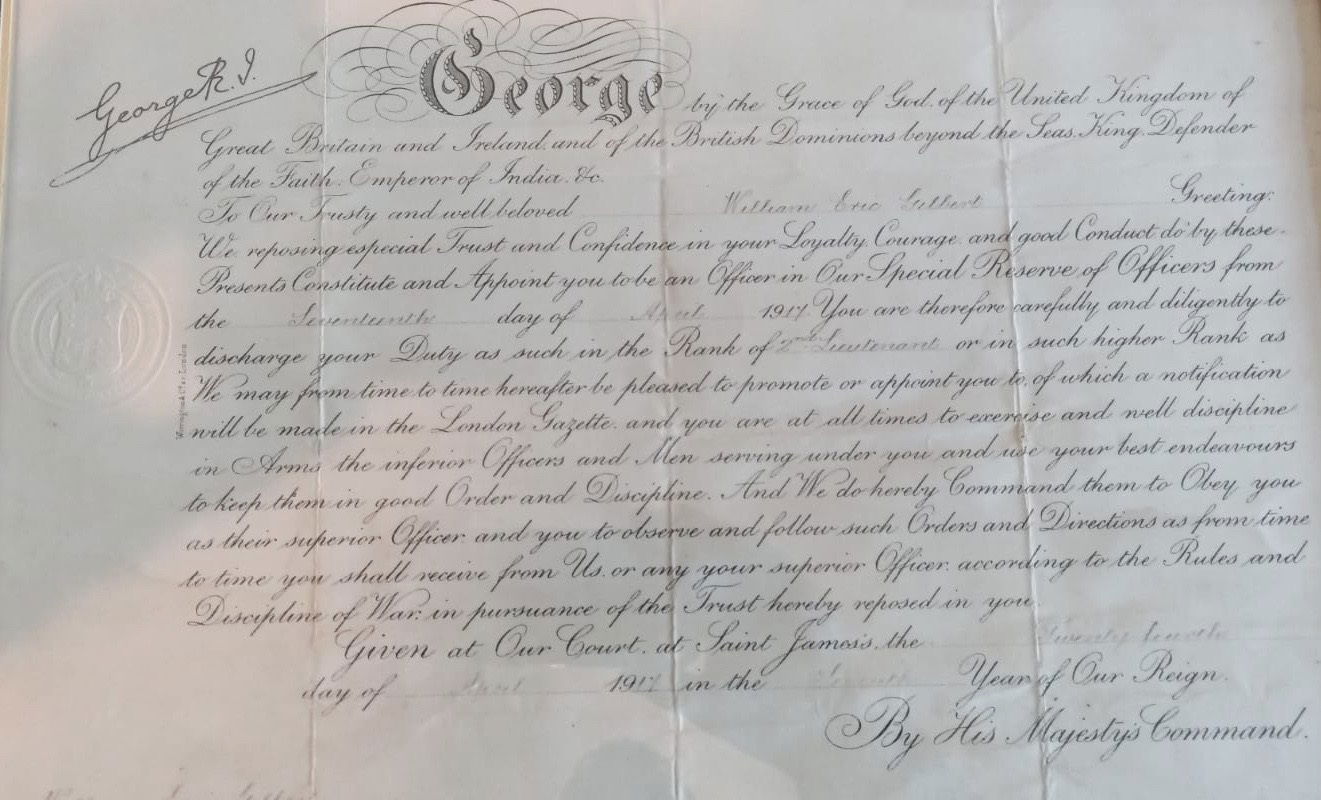 George R.I.
George by the Grace of God, of the United Kingdom of
Great Britain and Ireland and of the British Dominions beyond the Seas, King, Defender
of the Faith, Emperor of India, &c.
To Our Trusty and well beloved William Eric Gilbert Greeting:
We reposing especial Trust and Confidence in your Loyalty, Courage, and good Conduct do by these
Presents Constitute and Appoint you to be an Officer in Our Special Reserve of Officers from
the Seventeenth day of April 1917 You are therefore carefully and diligently to
discharge your Duty as such in the Rank of 2nd Lieutenant or in such higher Rank as
We may from time to time hereafter be pleased to promote or appoint you to, of which a notification
will be made in the London Gazette, and you are at all times to exercise and well discipline
in Arms the inferior Officers and Men serving under you and use your best endeavours
to keep them in good Order and Discipline. And We do hereby Command them to Obey you
as their superior Officer, and you to observe and follow such Orders and Directions as from time
to time you shall receive from Us, or any your superior Officer, according to the Rules and
Discipline of War, in pursuance of the Trust hereby reposed in you.
Given at Our Court, at Saint James's, the Twenty fourth
day of April 1917 in the Seventh Year of Our Reign.
By His Majesty's Command.